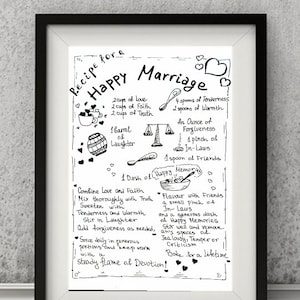 Recipe for a
Happy Marriage
2 cups of Love
2 cups of Faith
2 cups of Truth
4 spoons of Tenderness
2 spoons of Warmth
1 Barrel
of
Laughter
An Ounce of
Forgiveness
1 pinch of
In-Laws
1 spoon of Friends
1 Dash of Happy Memories
Combine Love and Faith
Mix thoroughly with Truth
Sweeten with
Tenderness and Warmth
Stir in Laughter
Add forgiveness as needed.
Flavour with Friends
a small pinch of
In-Laws
and a generous dash
of Happy Memories
Stir well and remove
any specks of
Jealousy, Temper or
Criticism
Serve daily in generous
portions and keep warm
with a
steady flame of Devotion!
Bake for a lifetime